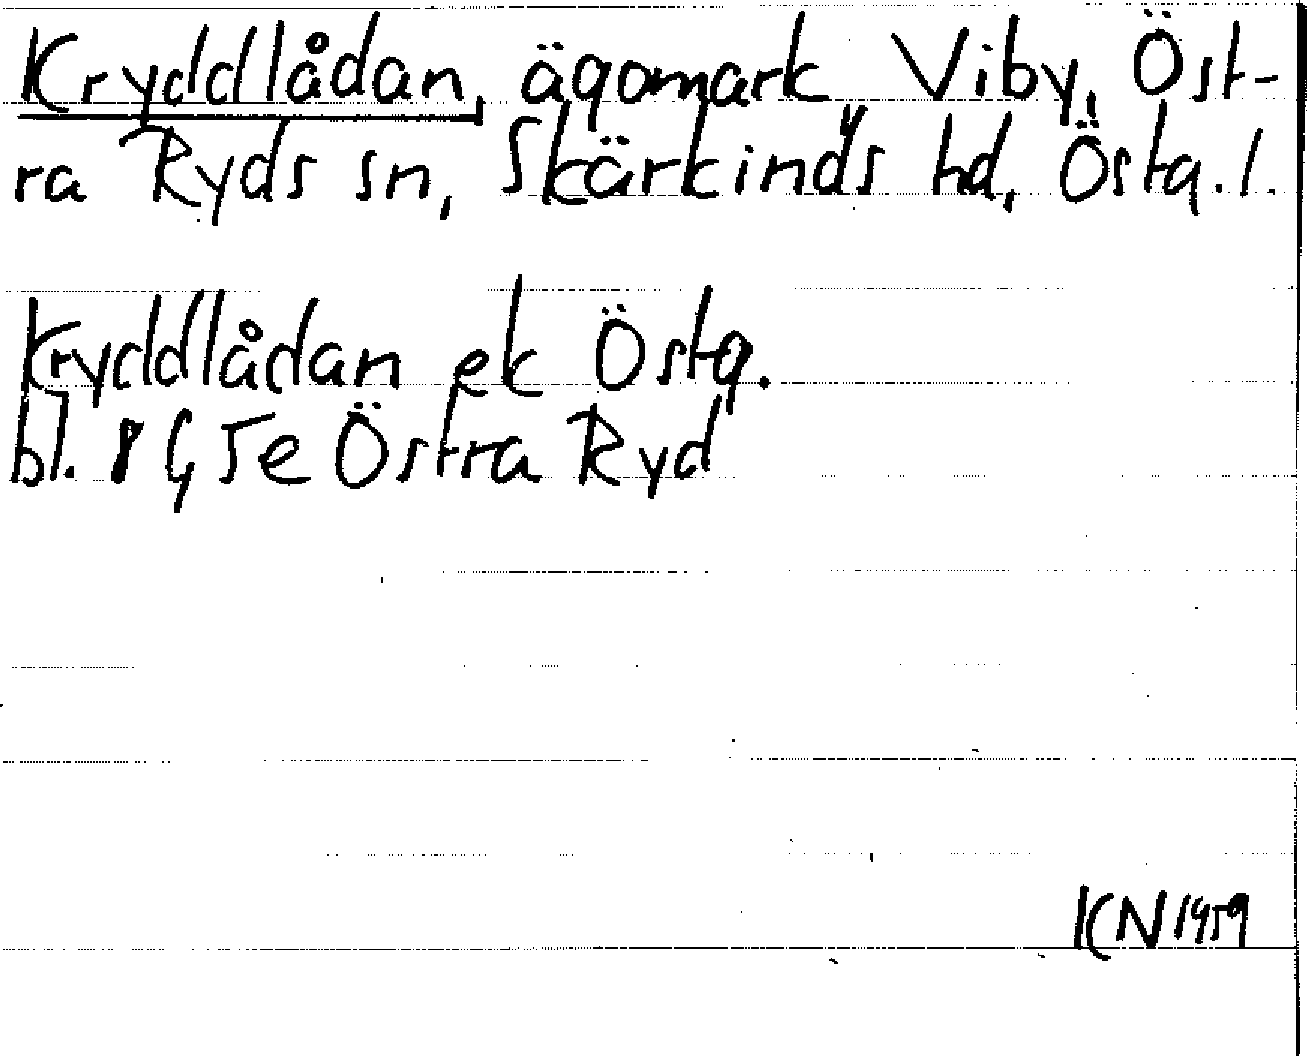 Kryddlådan, ägomark, Viby, Öst-
ra Ryds sn, Skärkinds hd, Östg. l.
Kryddlådan ek Östg.
bl. 8 G 5e Östra Ryd
KN 1959